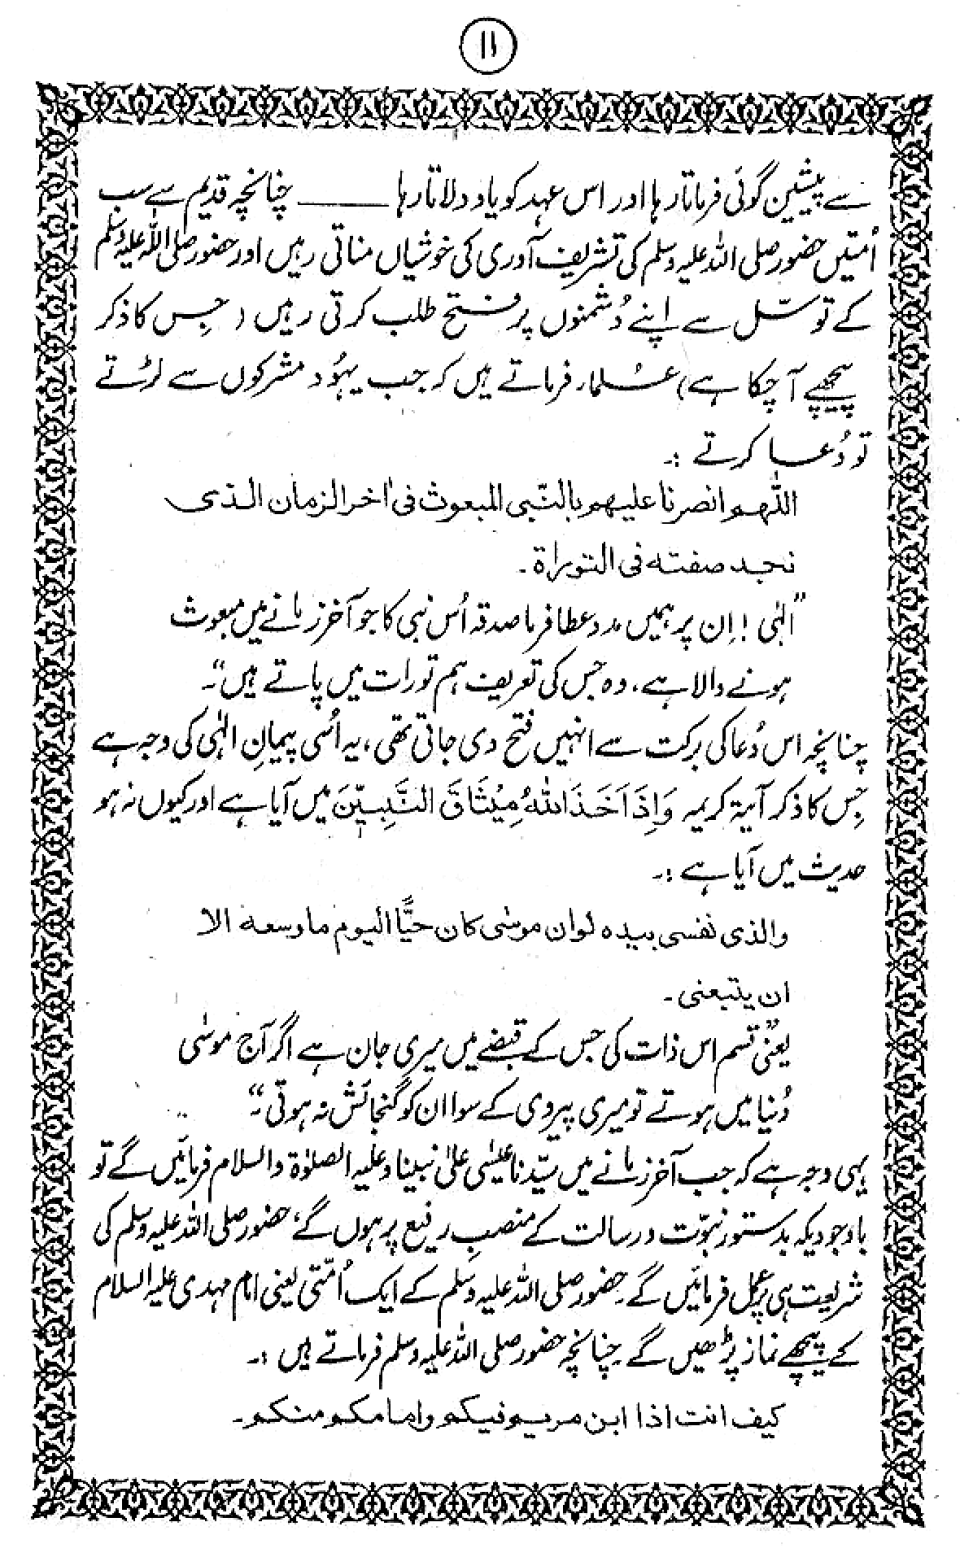 ۱۱
سے پیشین گوئی فرماتا رہا اور اس عہد کو یاد دلاتا رہا ـــــــــ چنانچہ قدیم سے سب
اُمتیں حضور صلی اللہ علیہ وسلم کی تشریف آوری کی خوشیاں مناتی رہیں اور حضور صلی اللہ علیہ وسلم
کے توسّل سے اپنے دُشمنوں پر فتح طلب کرتی رہیں (جِس کا ذکر
پیچھے آ چکا ہے) عُلماء فرماتے ہیں کہ جب یہوُد مشرکوں سے لڑتے
تو دُعا کرتے :۔
اللّٰھم انصرنا علیھم بالنّبی المبعوث فی اٰخر الزمان الذی
نجد صفته فی التوراة ۔
"الٰہی ! اِن پر ہمیں مدد عطا فرما صدقہ اُس نبی کا جو آخر زمانے میں مبعوث
ہونے والا ہے، وہ جس کی تعریف ہم تورات میں پاتے ہیں"۔
چنانچہ اس دُعا کی برکت سے انہیں فتح دی جاتی تھی، یہ اُسی پیمانِ الٰہی کی وجہ ہے
جِس کا ذکر آیۃ کریمہ وَاِذَ اَخَذَ اللّٰهُ مِیْثَاقَ النَّبِیّٖنَ میں آیا ہے اور کیوں نہ ہو
حدیث میں آیا ہے :۔
والذی نفسی بیدہ لو ان موسٰی کان حیًّا الیوم ما وسعه الا
ان یتبعنی ۔
"یعنی قسم اس ذات کی جس کے قبضے میں میری جان ہے اگر آج موسٰی
دُنیا میں ہوتے تو میری پیروی کے سوا ان کو گنجائش نہ ہوتی"۔
یہی وجہ ہے کہ جب آخر زمانے میں سیّدنا عیسٰی علیٰ نبینا و علیہ الصلوٰۃ والسلام فرمائیں گے تو
باوجودیکہ بدستور نبوّت و رسالت کے منصبِ رفیع پر ہوں گے، حضور صلی اللہ علیہ وسلم کی
شریعت ہی پر عمل فرمائیں گے۔ حضور صلی اللہ علیہ وسلم کے ایک اُمّتی یعنی امام مہدی علیہ السلام
کے پیچھے نماز پڑھیں گے چنانچہ حضور صلی اللہ علیہ وسلم فرماتے ہیں :۔
کیف انت اذا ابن مریم فیکم وامامکم منکم ۔